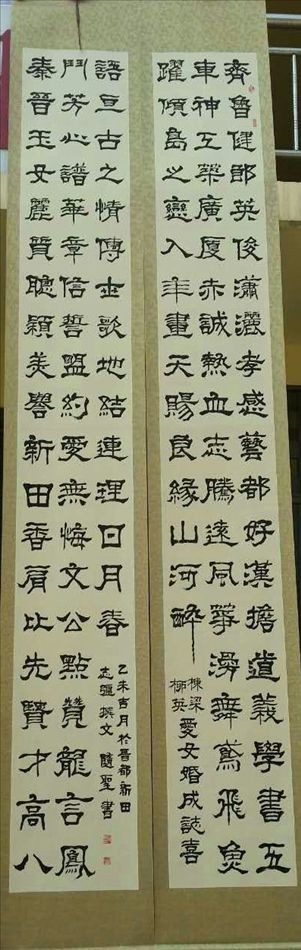 齊魯健郎英俊瀟灑孝感藝都好漢擔道義學書五
車神工築廣廈赤誠熱血志騰遠風箏滑舞鳶飛魚
躍傾島之戀入年畫天賜良緣山河醉
棟梁
柳英
愛女婚成誌喜
秦晉玉女麗質聰穎美譽新田香肩比先賢才高八
鬥芳心譜華章信誓盟約愛無悔文公點贊龍言鳳
語亘古之情傳世歌地結連理日月春
乙未吉月於晉都新田
志疆撰文 隨聖書